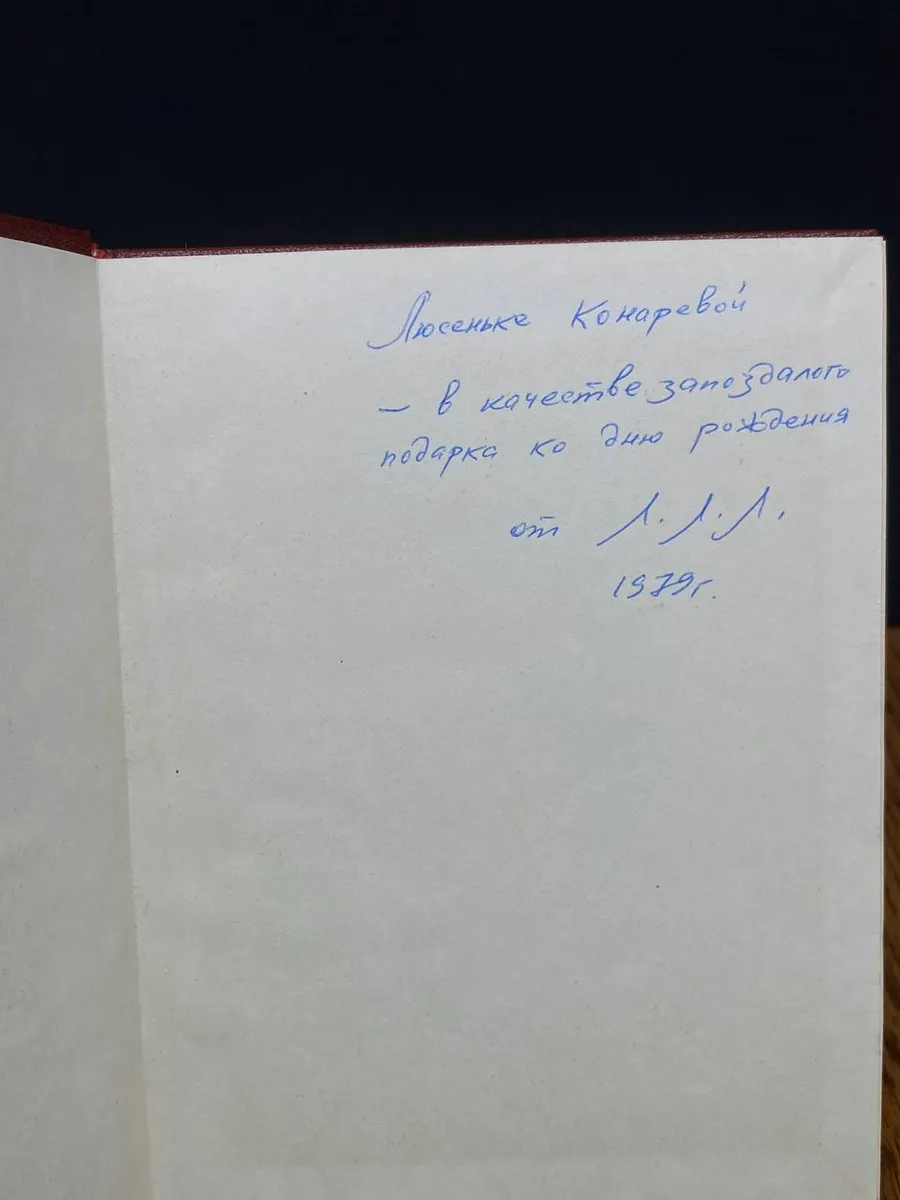 Люсеньке Конаревой
— в качестве запоздалого
подарка ко дню рождения
от Л. Л. Л.
1979г.